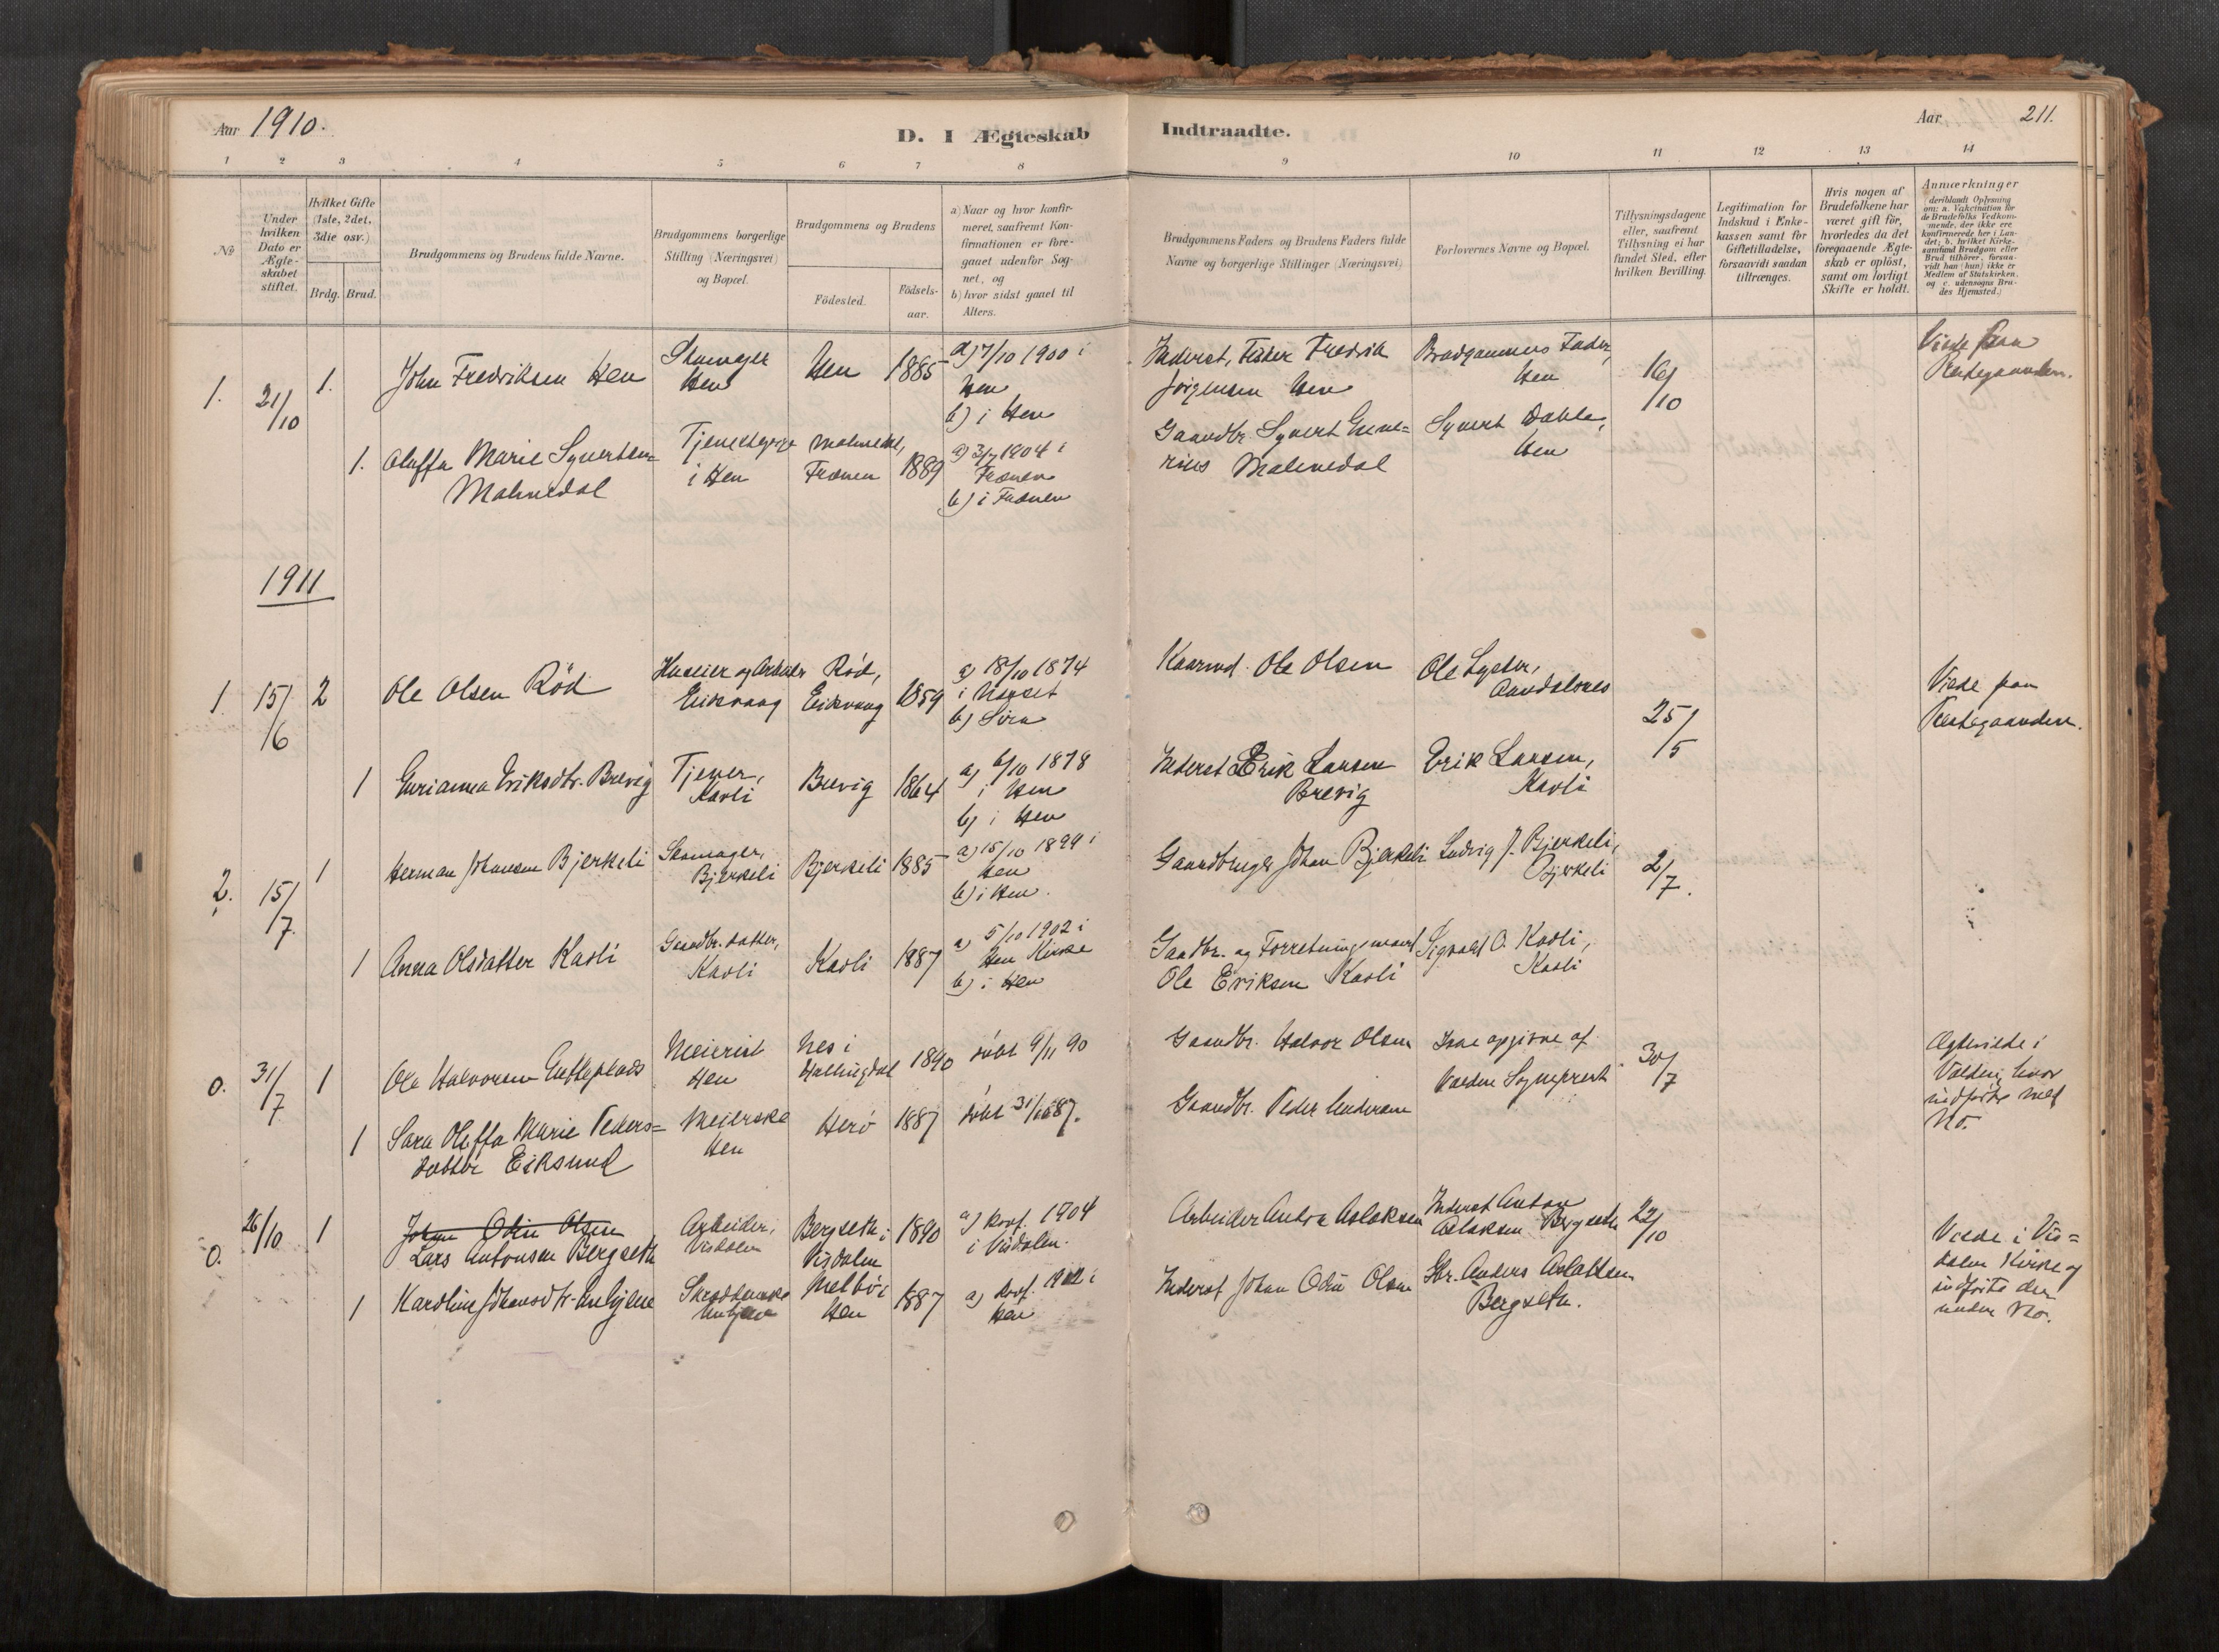 Aar 1910.
D. I Ægteskab
Indtraadte.
Aar 211.
1 2 3 4 5 6 7 8 9 10 11 12 13 14
№
Under hvilken Dato er Ægte-skabet stiftet.
Hvilket Gifte (1ste, 2det, 3die osv.)
Brdg. Brud.
Brudgommens og Brudens fulde Navne.
Brudgommens borgerlige Stilling (Næringsvei) og Bopæl.
Brudgommens og Brudens
Födested.
Födsels-aar.
a) Naar og hvor konfir-
meret, saafremt Kon-
firmationen er fore-
gaaet udenfor Sog-
net, og
b) hvor sidst gaaet til
Alters.
Brudgommens Faders og Brudens Faders fulde
Navne og borgerlige Stillinger (Næringsvei)
Forlovernes Navne og Bopæl.
Tillysningsdagene
eller, saafremt
Tillysning ei har
fundet Sted, efter
hvilken Bevilling.
Legitimation for
Indskud i Enke-
kassen samt for
Giftetilladelse,
forsaavidt saadan
tiltrænges.
Hvis nogen af
Brudefolkene har
været gift för,
hvorledes da det
foregaaende Ægte-
skab er oplöst,
samt om lovligt
Skifte er holdt.
Anmærkninger
(deriblandt Oplysning
om: a. Vakcination for
de Brudefolks Vedkom-
mende, der ikke ere
konfirmerede her i Lan-
det; b. hvilket Kirke-
samfund Brudgom eller
Brud tilhörer, forsaa-
vidt han (hun) ikke er
Medlem af Statskirken,
og c. udensogns Bru-
des Hjemsted.)
1. 21/10 1. John Fredriksen Hen
Skomager
Hen
Hen 1885
a) 7/10 1900 i
Hen
b) i Hen
Inderst, Fisker Fredrik
Jörgensen Hen
Brudgommens Fader,
Hen
16/10
Viede paa
Prestegaarden.
1. Oluffa Marie Syvertsen=
Malmedal
Tjenestepige
i Hen
Malmedal,
Frænen 1889
a) 3/7 1904 i
Frænen
b) i Frænen
Gaardbr. Syvert
Malmedal
Syvert Dahle,
Hen
1911
1. 15/6 2 Ole Olsen Röd
Huseier og Arbeider
Eidsvaag
Röd,
Eidsvaag 1859
a) 18/10 1874
i Nesset
b) Sira
Kaarmd. Ole Olsen
Ole
Aandalsnes
25/5
Viede paa
Prestegaarden.
1 Gurianna Eriksdtr. Brevig
Tjener,
Kavli
Brevig 1864
a) 6/10 1878
i Hen
b) i Hen
Inderst Erik Larsen
Brevig
Erik Larsen,
Kavli
2. 15/7. 1 Herman Johansen Bjerkeli
Skomager,
Bjerkeli
Bjerkeli 1885
a) 15/10 1899 i
Hen
b) i Hen.
Gaardbruger Johan Bjerkeli
Ludvig J. Bjerkeli,
Bjerkeli
2/7.
1 Anna Olsdatter Kavli
Gaardbr. datter,
Kavli
Kavli 1887
a) 5/10 1902 i
Hen Kirke
b) i Hen
Gaardbr. og Forretningsmand
Ole Eriksen Kavli
Sigvald O. Kavli,
Kavli
0. 31/7 1 Ole Halvorsen
Meierist
Hen
Nes i
Hallingdal 1890
döbt 9/11 90
Gaardbr. Halvor Olsen
Ikke opgivne af
Volden Sogneprest
30/7
Ægteviede i
Volden, hvor
indförte med
No.
1 Sara Oluffa Marie Peders=
datter Eiksund
Meierske
Hen
Herö 1887
döbt 31/ 87.
Gaardbr. Peder Andersen
0. 26/10 1 Johan Odin Olsen
Lars Antonsen Bergseth
Arbeider,
Visdalen
Bergseth i
Visdalen
1890
a) konf. 1904
i Visdalen.
Arbeider Anton Aslaksen
Inderst Anton
Aslaksen Bergseth
22/10
Viede i Vis=
dalen Kirke og
indförte der
under No.
1 Karoline Johansdtr.
Melbö i
Hen 1887
a) konf. 1902 i
Hen
Inderst Johan Odin Olsen
Gbr. Anders Aslaksen
Bergseth.